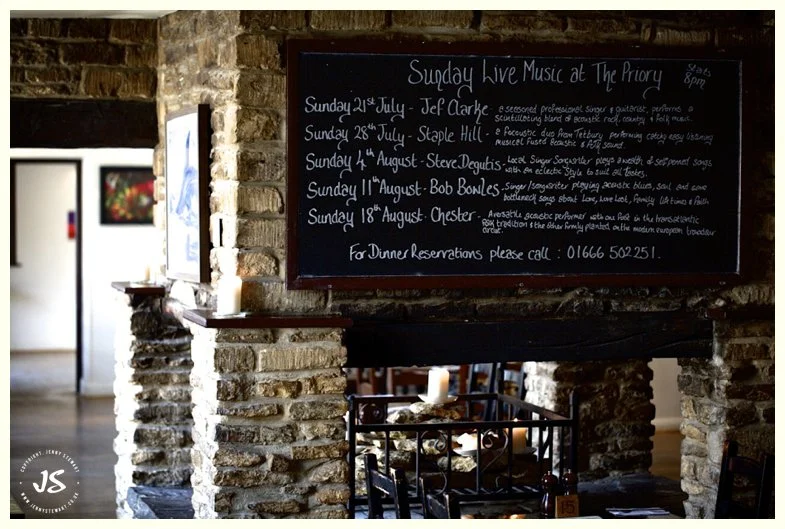 Sunday Live Music at The Priory
Starts
8pm
Sunday 21st July - Jef Clarke - a seasoned professional singer & guitarist, performs a
scintillating blend of acoustic rock, country & folk music.
Sunday 28th July - Staple Hill - a acoustic duo from Tetbury performing catchy easy listening
musical fused acoustic & sound.
Sunday 4th August - Steve Degutis - Local Singer Songwriter plays a wealth of self penned songs
with an eclectic style to suit all tastes.
Sunday 11th August - Bob Bowles - Singer/songwriter playing acoustic blues, soul and some
bottleneck songs about Love, Love Lost, Family, life times & Faith
Sunday 18th August - Chester - A versatile acoustic performer with one foot in the transatlantic
tradition & the other firmly planted on the modern european troubadour
For Dinner Reservations please call : 01666 502251.
15
COPYRIGHT, JENNY STEWART
JS
WWW.JENNYSTEWART.CO.UK